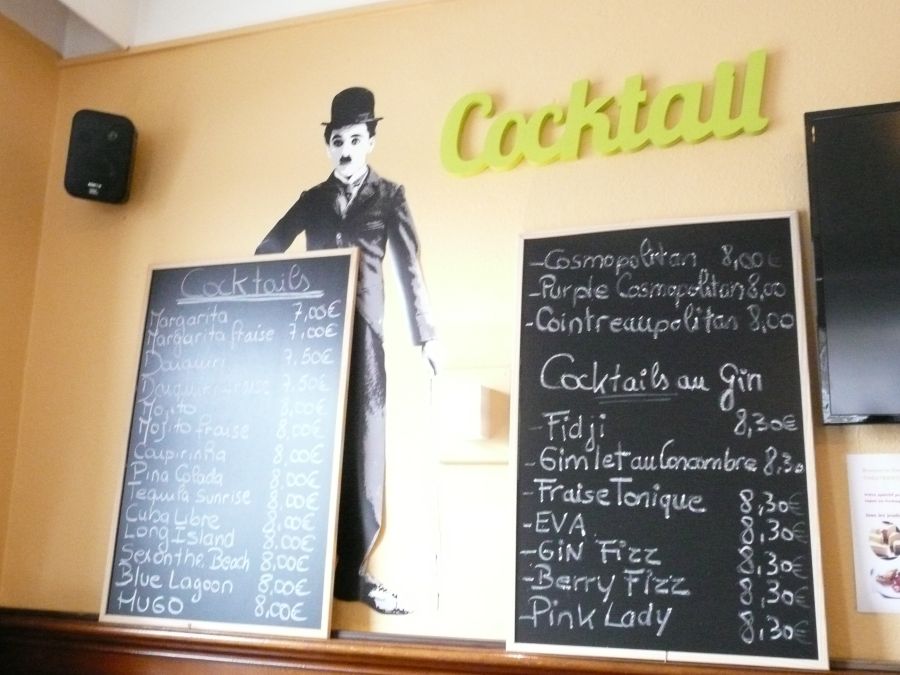 Cocktail
Cocktails
Margarita 7,00€
Margarita fraise 7,00€
Daiquiri 7.50€
Daiquiri fraise 7.50€
Mojito 8,00€
Mojito fraise 8,00€
Caipirinha 8,00€
Pina Colada 8,00€
Tequila Sunrise 8,00€
Cuba Libre 8,00€
Long Island 8,00€
Sex on the Beach 8,00€
Blue Lagoon 8,00€
HUGO 8,00€
-Cosmopolitan 8,00€
-Purple Cosmopolitan 8,00
-Cointreaupolitan 8,00
Cocktails au Gin
- Fidji 8,30€
-Gimlet au Concombre 8,30
-Fraise Tonique 8,30€
-EVA 8,30€
-GIN Fizz 8,30€
-Berry Fizz 8,30€
-Pink Lady 8,30€